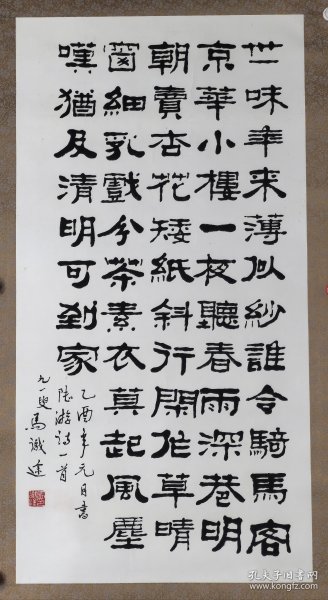 世味年来薄似紗誰令騎馬客
京華小樓一夜聽春雨深巷明
朝賣杏花矮紙斜行閑作草晴
窗細乳戲分茶素衣莫起風塵
嘆猶及清明可到家
乙酉年元日書
陸游詩一首
九一叟馬識途
孔夫子旧书网
www.kongfz.com